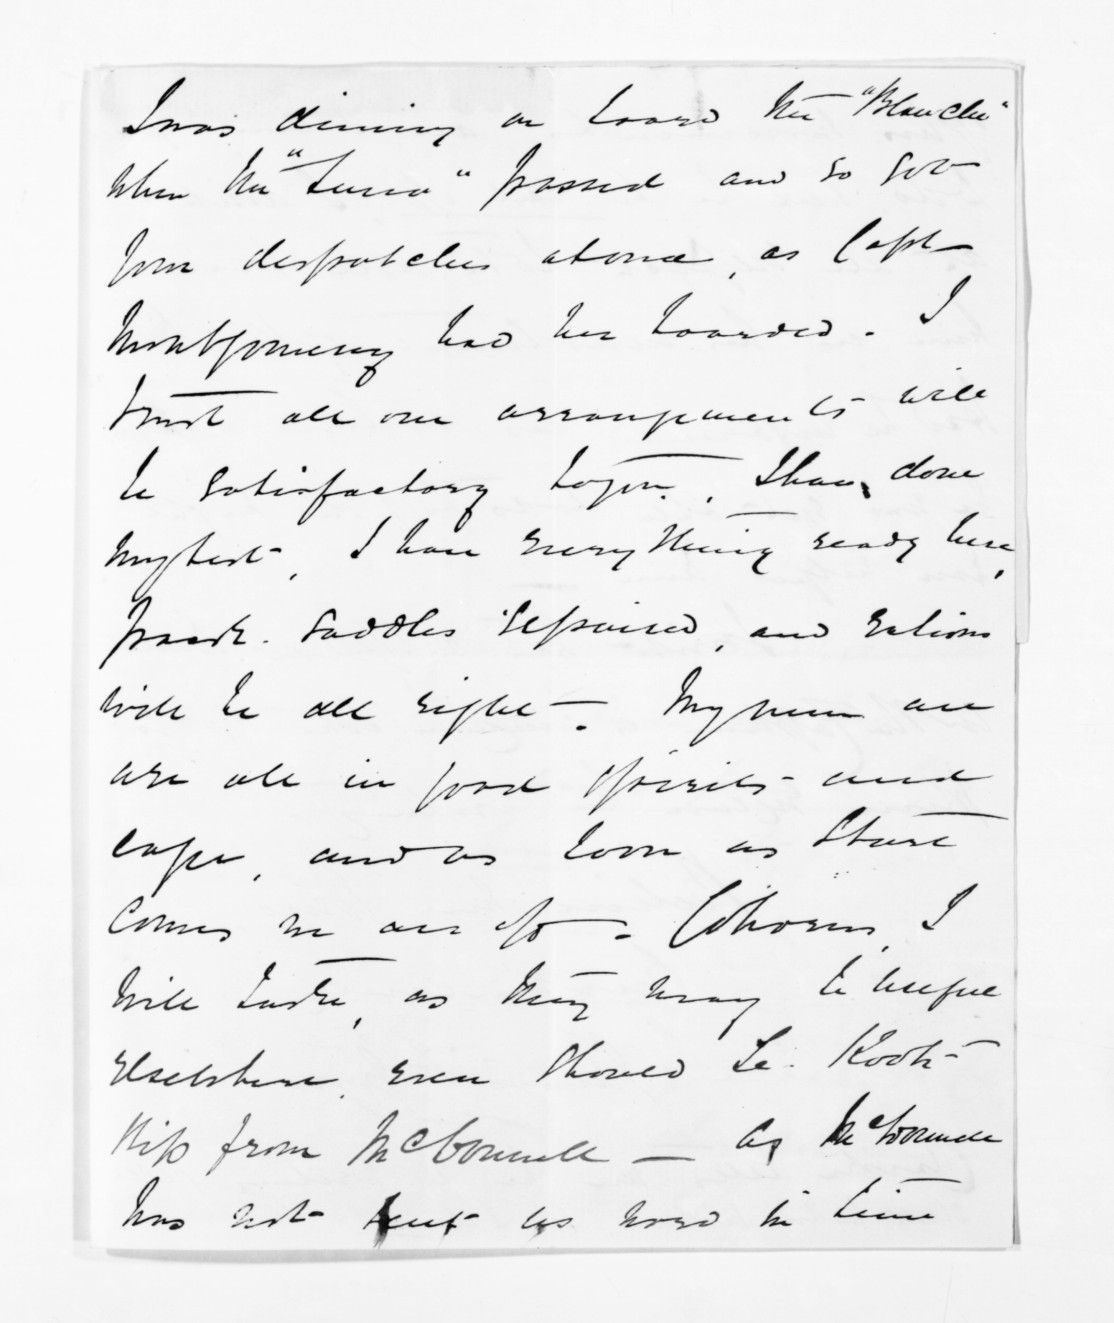 I was dining on board the "Blanche"
when the "Sturt" passed and so got
your despatches at once, as Capt
Montgomery had her boarded. I
trust all our arrangements will
be satisfactory to you. I have done
my best, I have everything ready here,
pack saddles repaired, and rations
will be all right. My men are
are all in good spirits and
eager, and as soon as Sturt
comes we are off. Cohorns, I
will take, as they may be useful
elsewhere, even should Te Kooti
slip from McDonnell — As McDonnell
has not sent us word in time